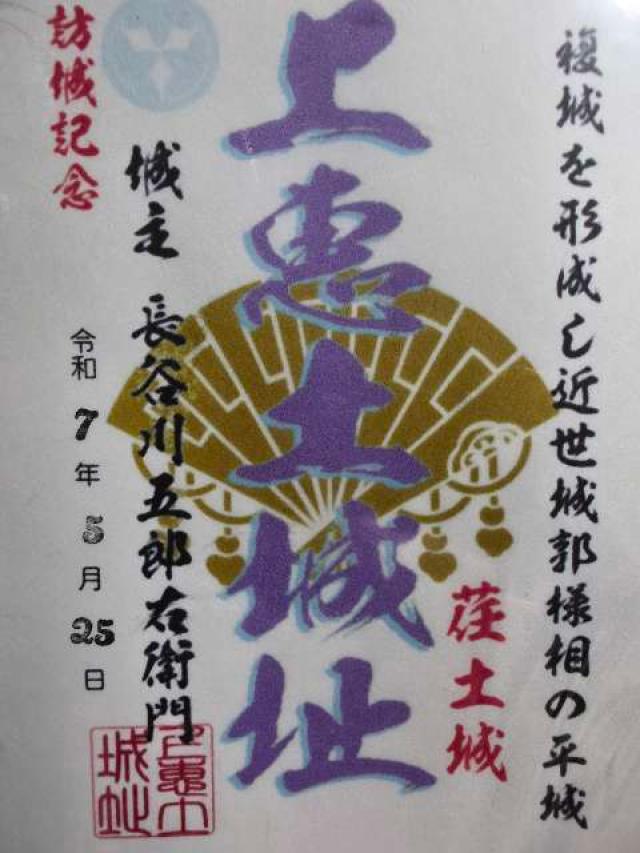 複城を形成し近世城郭様相の平城
上恵土城址
荏土城
訪城記念
城主 長谷川五郎右衛門
令和7年5月25日
上恵土城址